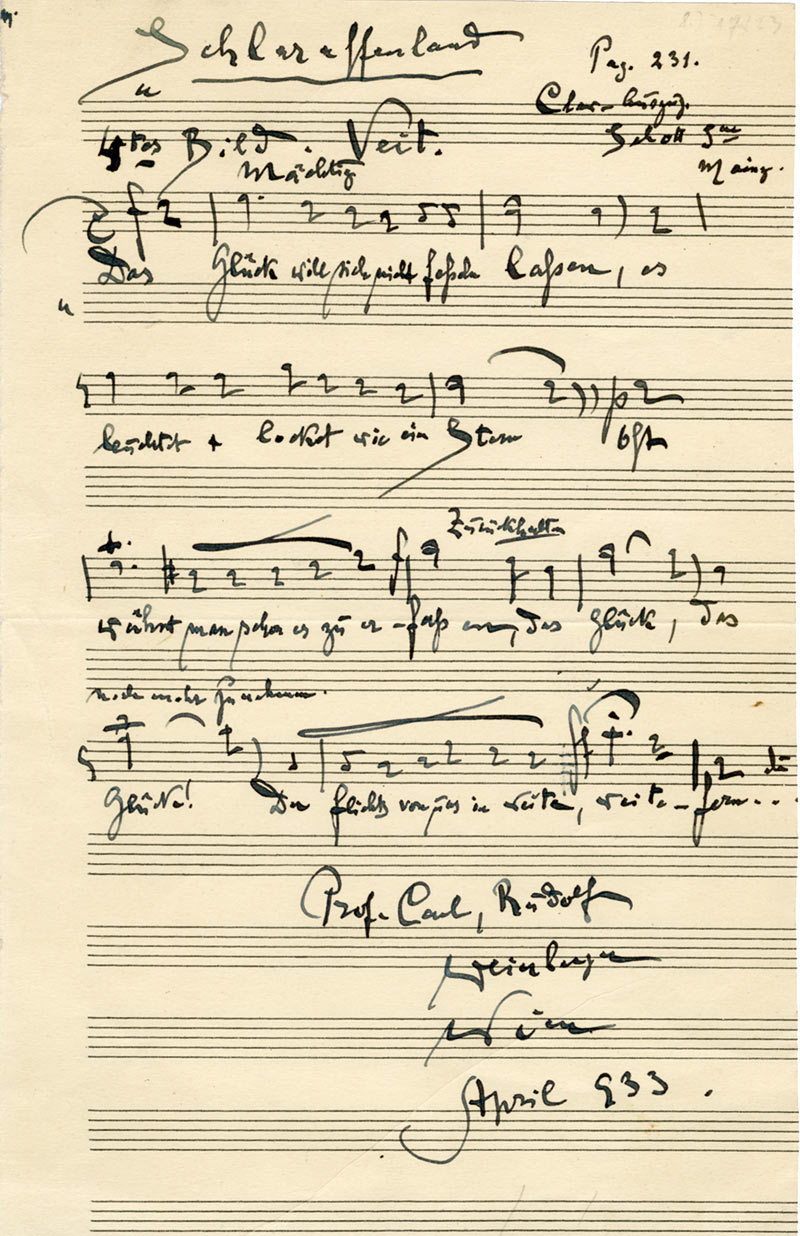 "Schlaraffenland"
Pag. 231.
Clav-Auszug.
Schott Sne
Mainz.
4tes Bild. Veit.
Mächtig
f
Das Glück will sich nicht fesseln lassen, es
p
leuchtet + locket wie ein Stern oft
Zurückhalten
f
wähnt man schon es zu erfassen, das Glück, das
noch mehr
ff
Glück! Da flieht's von uns in weite, weite fern...
Prof. Carl, Rudolf
Weinberger
Wien
April 933.